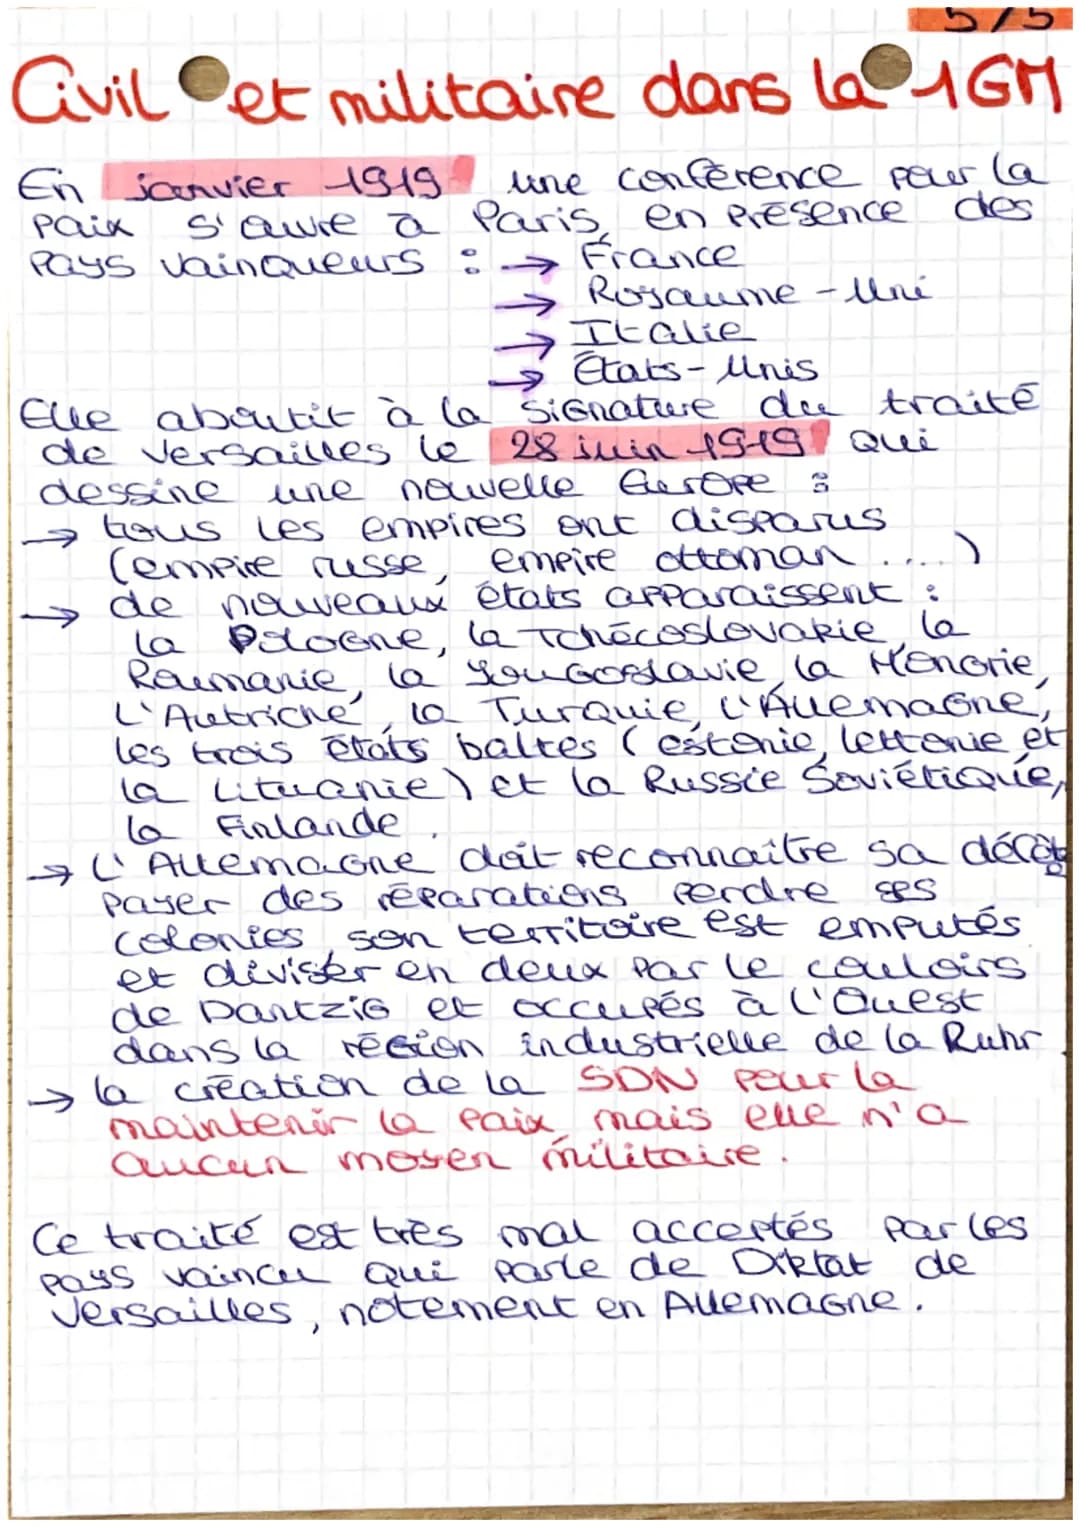 5/5
Civil et militaire dans la 1GM
En janvier 1919 une conférence pour la
paix s'ouvre à Paris, en présence des
pays vainqueurs : → France
→ Royaume-Uni
→ Italie
→ États-Unis
Elle aboutit à la signature du traité
de Versailles le 28 juin 1919 qui
dessine une nouvelle Europe :
→ tous les empires ont disparus
(empire russe, empire ottoman ....)
→ de nouveaux états apparaissent :
la Pologne, la Tchécoslovakie, la
Roumanie, la Yougoslavie, la Hongrie,
L'Autriche, la Turquie, l'Allemagne,
les trois états baltes (estonie, lettonie et
la Lituanie) et la Russie Soviétique,
la Finlande.
→ L'Allemagne doit reconnaître sa défaite
payer des réparations perdre ses
colonies, son territoire est emputés
et diviser en deux par le couloirs
de Dantzig et occupés à l'Ouest
dans la région industrielle de la Ruhr.
→ la création de la SDN pour la
maintenir la paix, mais elle n'a
aucun moyen militaire.
Ce traité est très mal acceptés par les
pays vaincu qui parle de Diktat de
Versailles, notement en Allemagne.